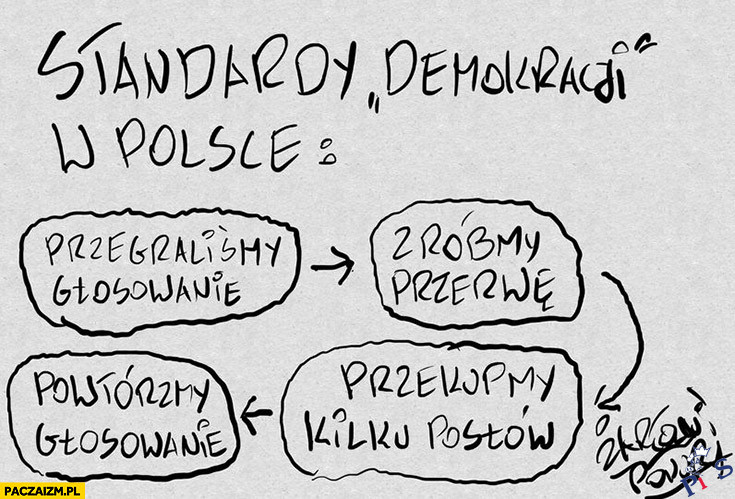 STANDARDY „DEMOKRACJI“
W POLSCE:
PRZEGRALIŚMY
GŁOSOWANIE
ZRÓBMY
PRZERWĘ
PRZEKUPMY
KILKU POSŁÓW
POWTÓRZMY
GŁOSOWANIE
PiS
PACZAIZM.PL